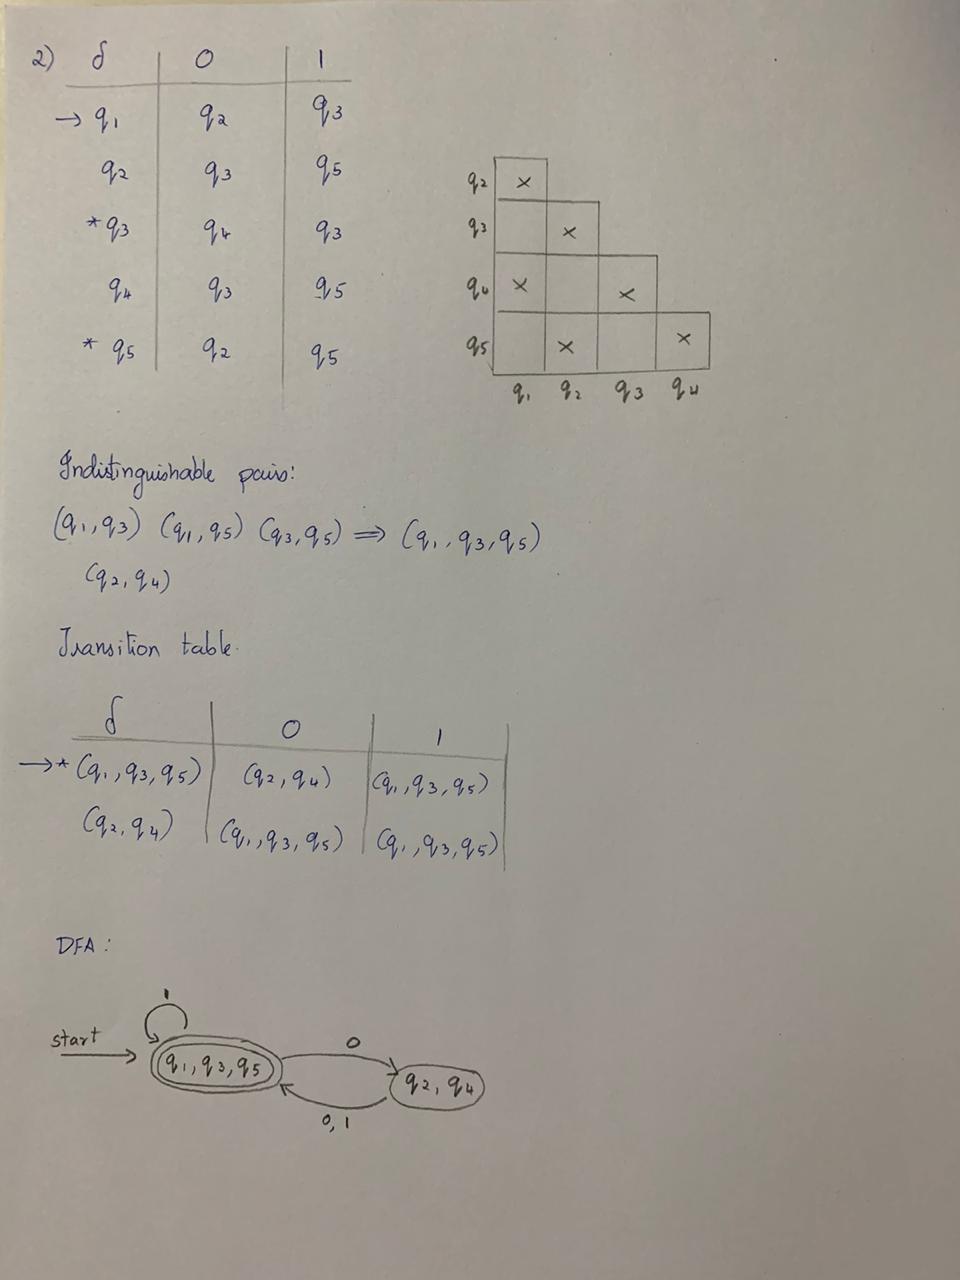 2) δ 0 1
→ q1 q2 q3
q2 q3 q5
* q3 q4 q3
q4 q3 q5
* q5 q2 q5
q2 ×
q3 ×
q4 × ×
q5 × ×
q1 q2 q3 q4
Indistinguishable pairs:
(q1, q3) (q1, q5) (q3, q5) ⇒ (q1, q3, q5)
(q2, q4)
Transition table.
δ 0 1
→ * (q1, q3, q5) (q2, q4) (q1, q3, q5)
(q2, q4) (q1, q3, q5) (q1, q3, q5)
DFA :
1
start 0
q1, q3, q5 q2, q4
0, 1